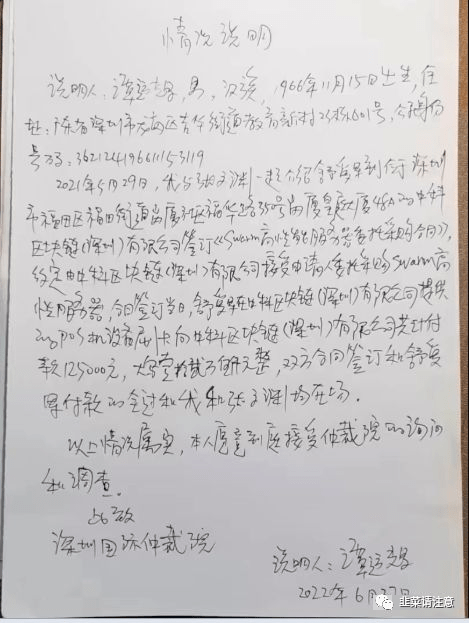 情况说明
说明人：谭运良，男，汉族，1966年11月15日出生，住
址：广东省深圳市龙岗区吉华街道教育新村2栋601号，公民身份
号码：362124196611153119
2021年5月29日，我与张文渊一起介绍舒俊果到位于深圳
市福田区福田街道岗厦社区福华路350号岗厦皇庭大厦
区块链（深圳）有限公司签订《Swarm高性能服务器委托采购合同》，
约定由牛科区块链（深圳）有限公司接受申请人委托采购Swarm高
性服务器，合同签订当日，舒俊果在牛科区块链（深圳）有限公司提供
的pos机设备刷卡向牛科区块链（深圳）有限公司共计付
款125000元，大写壹拾贰万伍仟元整，双方合同签订和舒俊
果付款的全过程我和张文渊均在场。
以上情况属实，本人愿意到庭接受仲裁院的询问
和调查。
此致
深圳国际仲裁院
说明人：谭运良
2022年6月27日
韭菜请注意